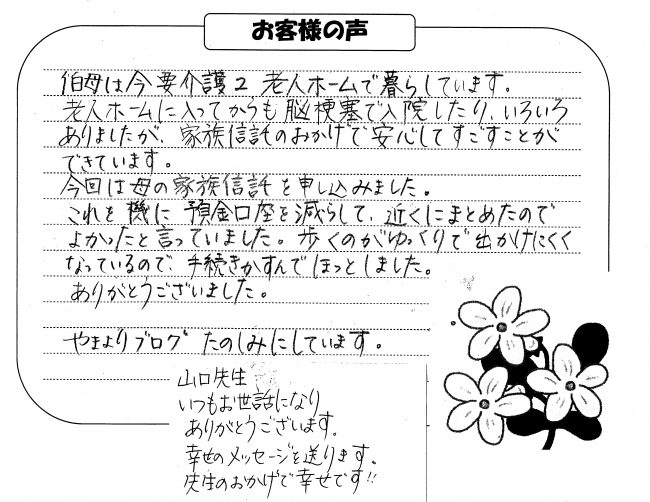 お客様の声
伯母は今要介護2、老人ホームで暮らしています。
老人ホームに入ってからも脳梗塞で入院したり、いろいろ
ありましたが、家族信託のおかげで安心してすごすことが
できています。
今回は母の家族信託を申し込みました。
これを機に預金口座を減らして、近くにまとめたので
よかったと言っていました。歩くのがゆっくりで出かけにくく
なっているので、手続きがすんでほっとしました。
ありがとうございました。
やまよりブログ たのしみにしています。
山口先生
いつもお世話になり
ありがとうございます。
幸せのメッセージを送ります。
先生のおかげで幸せです!!